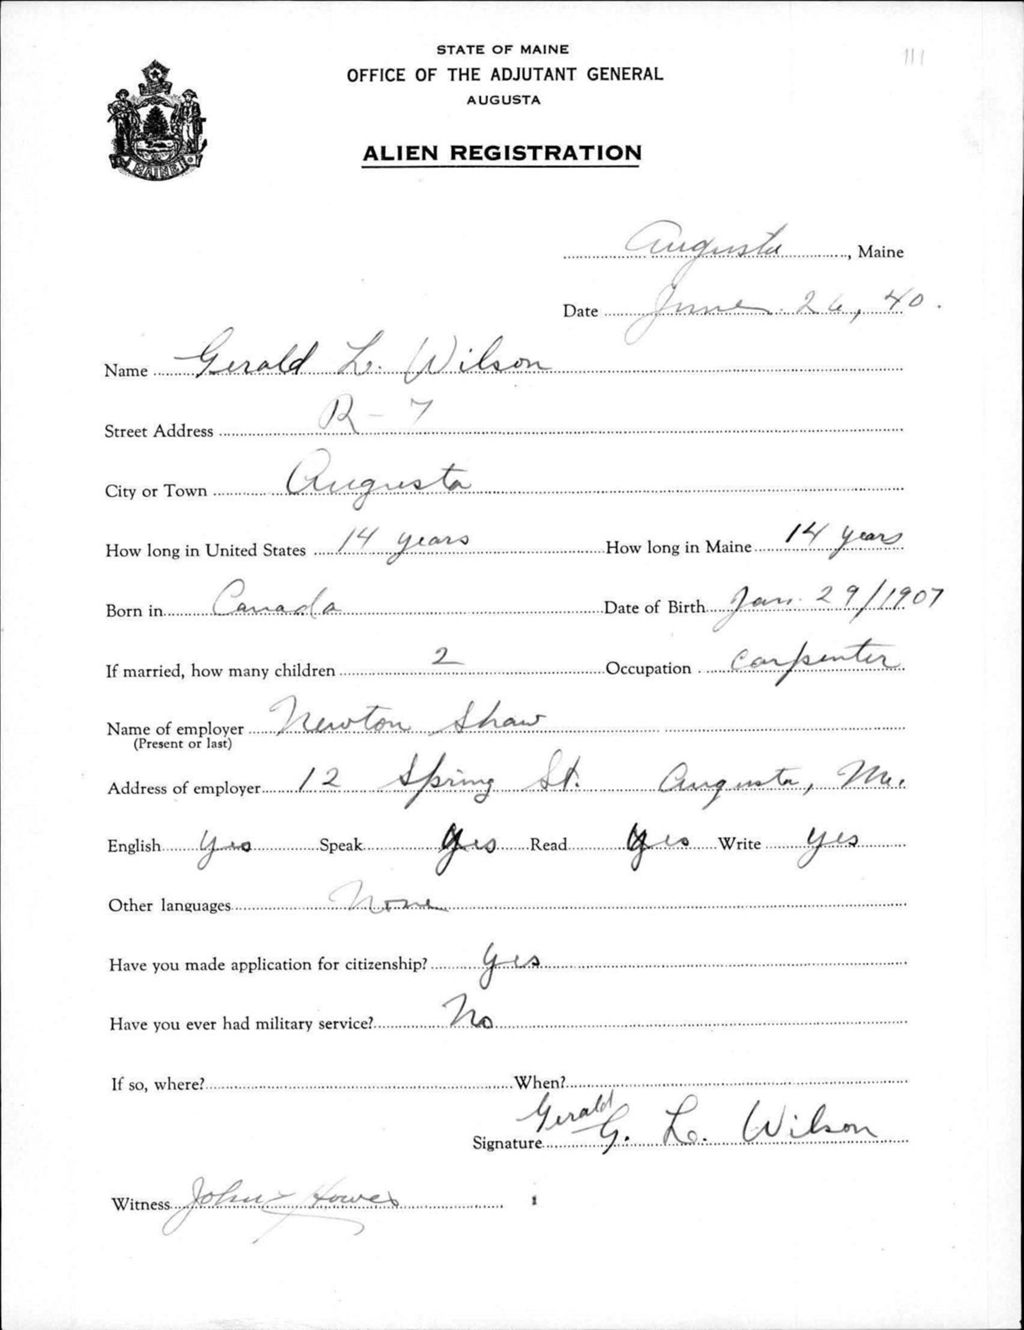 STATE OF MAINE
OFFICE OF THE ADJUTANT GENERAL
AUGUSTA
ALIEN REGISTRATION
111
MAINE
Augusta, Maine
Date June 26, 40.
Name Gerald L. Wilson
Street Address R-7
City or Town Augusta
How long in United States 14 years How long in Maine 14 years
Born in Canada Date of Birth Jan. 29/1907
If married, how many children 2 Occupation Carpenter
Name of employer Newton Shaw
(Present or last)
Address of employer 12 Spring St. Augusta, Me.
English Yes Speak Yes Read Yes Write Yes
Other languages None
Have you made application for citizenship? Yes
Have you ever had military service? No
If so, where? When?
Gerald
Signature G. L. Wilson
Witness John Howes